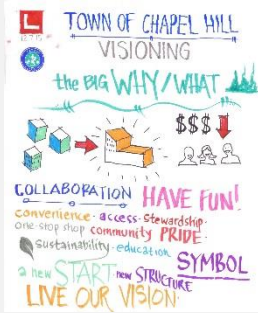 L
12.7.15
TOWN OF CHAPEL HILL
VISIONING
the BIG WHY/WHAT
$$$
COLLABORATION HAVE FUN!
convenience · access · Stewardship ·
one stop shop community PRIDE ·
sustainability · education
SYMBOL
a new START · new STRUCTURE
LIVE OUR VISION ·